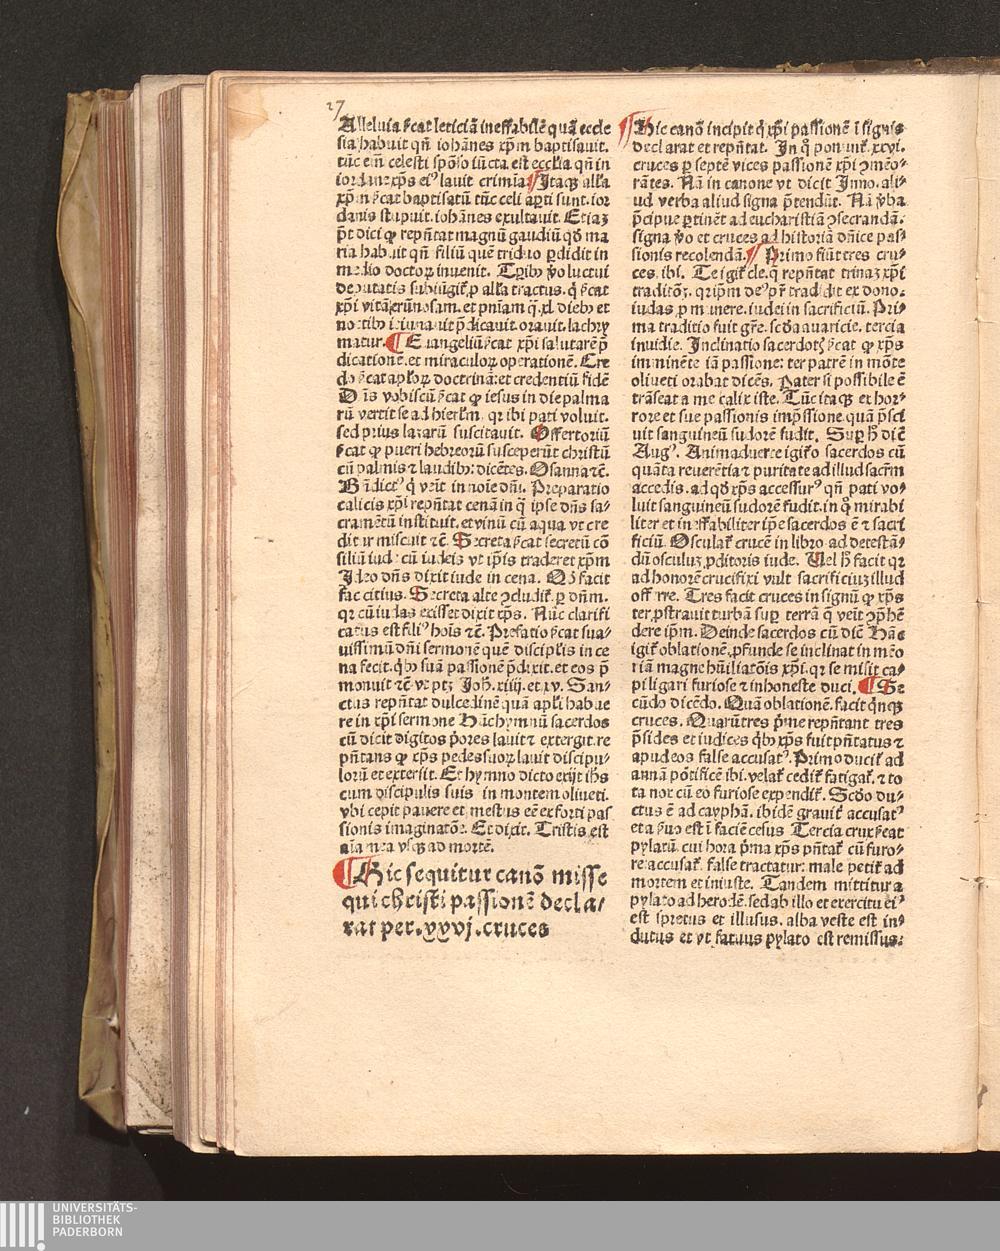 27
Alleluia ſcat leticiā ineffabilē quā eccle
ſia habuit qn̄ iohānes xp̄m baptiſauit.
tūc em̄ celeſti ſpōſo iūcta eſt eccl̄ia qn̄ in
iordane xp̄s eiꝰ lauit crimīa ¶ Itaqꝫ all̄a
xp̄m ſcat baptiſatū tūc celi aꝑti ſunt. ior
danis ſtupuit. iohānes exultauit. Etiaꝫ
p̄t dici ꝙ rep̄ntat magnū gaudiū qd̄ ma
ria habuit qn̄ filiū quē triduo ꝑdidit in
medio doctoꝝ inuenit. Tꝑibꝫ v̄o luctui
deputatis ſubiūgit᷑ ꝓ all̄a tractus. q̄ ſcat
xp̄i vitā erūnoſam. et pn̄iam q̄. xl. diebꝫ et
noctibꝫ ieiunauit p̄dicauit. orauit. lachry
matur. ¶ Euangeliū ſcat xp̄i ſalutarē p̄
dicationē. et miraculoꝝ operationē. Cre
do ſcat apl̄oꝝ doctrinā: et credentiū fidē
Dn̄s vobiſcū ſcat ꝙ ieſus in die palma
rū vertit ſe ad hierl̄m. qꝛ ibi pati voluit.
ſed prius lazarū ſuſcitauit. Offertoriū
ſcat ꝙ pueri hebreorū ſuſceperūt chriſtū
cū palmis ⁊ laudibꝫ: dicētes. Oſanna ⁊c̄.
Bn̄dictꝰ q̄ venit in noīe dn̄i. Preparatio
calicis xp̄i rep̄ntat cenā in q̄ ipſe dn̄s ſa-
cramētū inſtituit. et vinū cū aqua vt cre
ditur miſcuit ⁊c̄. Secreta ſcat ſecretū cō
ſiliū iude cū iudeis vt ip̄is traderet xp̄m
Ideo dn̄s dixit iude in cena. Qd̄ facit
fac citius. Secreta alte ↄcludit᷑. ꝑ dn̄m.
qꝛ cū iudas exiſſet dixit xp̄s. Nūc clarifi
catus eſt filiꝰ hoīs ⁊c̄. Prefatio ſcat ſua-
uiſſimū dn̄i ſermonē quē diſcipl̄is in ce
na fecit. q̇bꝫ ſuā paſſionē p̄dixit. et eos p̄
monuit ⁊c̄ vt ptꝫ Joh̄. xiiij. et xv. San-
ctus rep̄ntat dulcedinē quā apl̄i habue
re in xp̄i ſermone Hūc hymnū ſacerdos
cū dicit digitos p̄ores lauit ⁊ extergit. re
pn̄tans ꝙ xp̄s pedes ſuoꝝ lauit diſcipu-
lorū et exterſit. Et hymno dicto exijt ih̄s
cum diſcipulis ſuis in montem oliueti.
vbi cepit pauere et meſtus eē ex forti paſ
ſionis imaginatōe. Et dixit. Triſtis eſt
aīa mea vſqꝫ ad mortē.
¶ Hic ſequitur canō miſſe
qui chriſti paſſionē decla-
rat per. xxvj. cruces
¶ Hic canō incipit q̄ xp̄i paſſionē ī ſignis
declarat et rep̄ntat. In q̄ ponunt᷑. xxvi.
cruces ꝑ ſeptē vices paſſionē xp̄i ↄmēo-
rātes. Nā in canone vt dicit Inno. ali-
ud verba aliud ſigna p̄tendūt. Nā v̄ba
p̄cipue ꝑtinēt ad euchariſtiā ↄſecrandā.
ſigna v̄o et cruces ad hiſtoriā dn̄ice paſ-
ſionis recolendā. ¶ Primo fiūt tres cru-
ces. ibi. Te igit᷑ cle. q̄ rep̄ntat trinaꝫ xp̄i
traditōꝫ. qꝛ ip̄m deꝰ pr̄ tradidit ex dono.
iudas ꝓ munere. iudei in ſacrificiū. Pri-
ma traditio fuit gr̄e. ſcd̄a auaricie. tercia
inuidie. Inclinatio ſacerdotꝭ ſcat ꝙ xp̄s
imminēte iā paſſione: ter patrē in mōte
oliueti orabat dicēs. Pater ſi poſſibile ē
trāſeat a me calix iſte. Tūc itaqꝫ ex hor-
rore et ſue paſſionis imp̄ſſione quā p̄ſci
uit ſanguineū ſudorē fudit. Suꝑ h̄ dic̄
Augꝰ. Animaduerte igit᷑ o ſacerdos cū
quāta reuerētia ⁊ puritate ad illud ſacr̄m
accedis. ad qd̄ xp̄s acceſſurꝰ qn̄ pati vo-
luit ſanguineū ſudorē fudit. in q̄ mirabi
liter et ineffabiliter ip̄e ſacerdos ē ⁊ ſacri
ficiū. Oſculat᷑ crucē in libro. ad deteſtā-
dū oſculuꝫ ꝓditoris iude. Vel h̄ facit qꝛ
ad honorē crucifixi vult ſacrificiuꝫ illud
offerre. Tres facit cruces in ſignū ꝙ xp̄s
ter ꝓſtrauit turbā ſuꝑ terrā q̄ venit ↄp̄hē
dere ip̄m. Deinde ſacerdos cū dic̄ Hāc
igit᷑ oblationē. ꝓfunde ſe inclinat in mēo
riā magne hūiliatōis xp̄i. qꝛ ſe miſit ca-
pi ligari furioſe ⁊ inhoneſte duci. ¶ Se
cūdo dicēdo. Quā oblationē. facit q̄nqꝫ
cruces. Quarū tres p̄me rep̄ntant tres
p̄ſides et iudices q̇bꝫ xp̄s fuit pn̄tatus ⁊
apud eos falſe accuſatꝰ. Primo ducit᷑ ad
annā pōtificē ibi. velat᷑ cedit᷑ fatigat᷑. ⁊ to
ta nox cū eo furioſe expendit᷑. Scd̄o du-
ctus ē ad cayphā. ibidē grauit᷑ accuſatꝰ
et a ſeruo eſt ī faciē ceſus Tercia crux ſcat
pylatū. cui hora p̄ma xp̄s pn̄tat᷑ cū furo-
re: accuſat᷑. falſe tractatur: male petit᷑ ad
mortem et iniuſte. Tandem mittitur a
pylato ad herodē. ſed ab illo et exercitu eiꝰ
eſt ſpretus et illuſus. alba veſte eſt in-
dutus et vt fatuus pylato eſt remiſſus.
UNIVERSITÄTS-
BIBLIOTHEK
PADERBORN